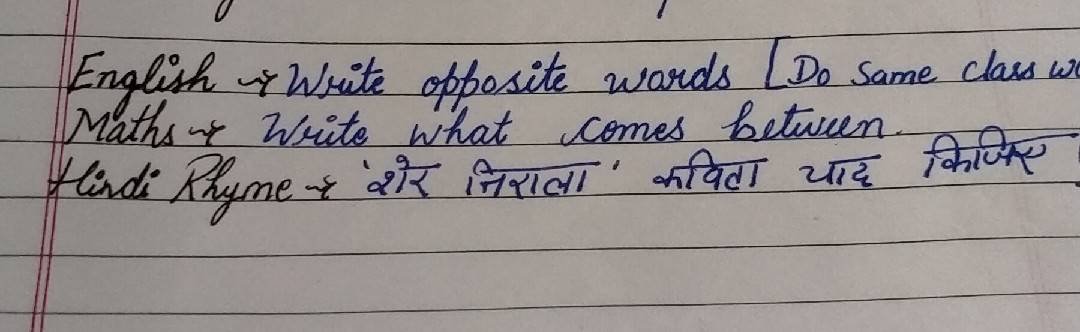 English → Write opposite words [Do Same class w
Maths → Write what comes between.
Hindi Rhyme → 'शेर निराला' कविता याद किजिए